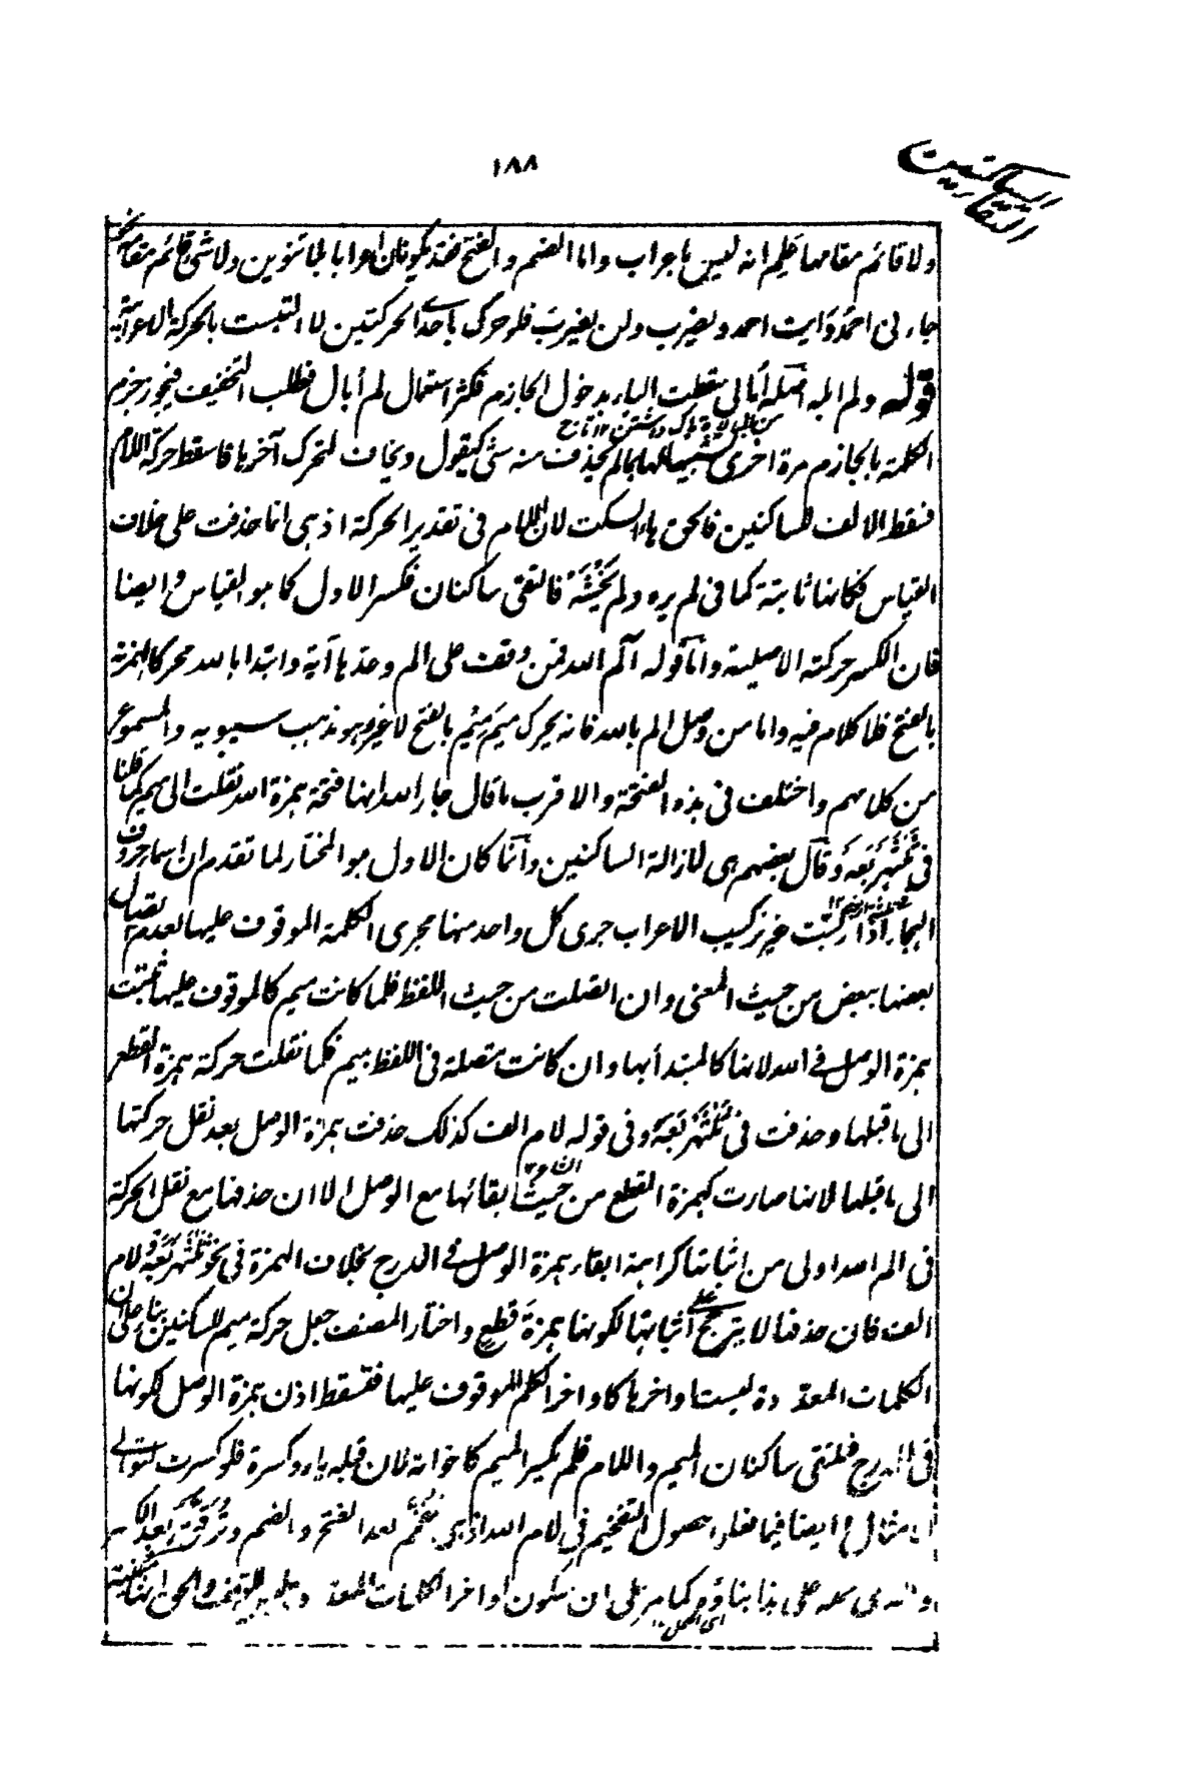 ١٨٨
التقاء الساكنين
ولا قائم مقامها علم انه ليس باعراب واما الضم والفتح فقد يكونان اعرابا بلا تنوين ولا شئ قائم مقامه نحو
جاءنى احمدُ ورايت احمد ويضرب ولن يضربَ فلو حرك باحدى الحركتين لا التبست بالحركة الاعرابية
قوله ولم ابله اصله أبالى سقطت الياء بدخول الجازم فكثر استعمال لم أبال فطلب التخفيف فيجوز جزم
الكلمة بالجازم مرة اخرى تشبيها لها بما لم يحذف منه شئ كيقول ويخاف لتحرك آخرها فاسقط حركة اللام
فسقط الالف للساكنين فالحق هاء السكت لان اللام فى تقدير الحركة اذ هى انما حذفت على خلاف
القياس فكانها ثابتة كما فى لم يره ولم يخشَهْ فالتقى ساكنان فكسر الاول كما هو القياس وايضا
فان الكسر حركته الاصلية واما قوله آلم الله فمن وقف على الم وعدها آية وابتدا بالله محركا لهمزته
بالفتح فلا كلام فيه واما من وصل الم بالله فانه يحرك ميم ميم بالفتح لا غير وهو مذهب سيبويه والمسموع
من كلامهم واختلف فى هذه الفتحة والاقرب ما قال جار الله انها فتحة همزة الله نقلت الى ميم كما قلنا
فى ثلثهربعه وقال بعضهم هى لازالة الساكنين وانما كان الاول هو المختار لما تقدم ان اسماء حروف
الهجاء اذا ركبت غير تركيب الاعراب جرى كل واحد منها مجرى الكلمة الموقوف عليها لعدم اتصال
بعضها ببعض من حيث المعنى وان اتصلت من حيث اللفظ فلما كانت ميم كالموقوف عليها ثبتت
همزة الوصل فى الله لانها كالمبتدأ بها وان كانت متصلة فى اللفظ بميم فكما نقلت حركة همزة القطع
الى ما قبلها وحذفت فى ثلثهربعه وفى قوله لام الف كذلك حذفت همزة الوصل بعد نقل حركتها
الى ما قبلها لانها صارت كهمزة القطع من حيث بقائها مع الوصل الا ان حذفها مع نقل الحركة
فى الم الله اولى من اثباتها كراهة ابقاء همزة الوصل فى الدرج بخلاف الهمزة فى نحو ثلثهربعه ولام
الف فان حذفها لا يترجح على اثباتها لكونها همزة قطع واختار المصنف جعل حركة ميم للساكنين بناء على ان
الكلمات المعدودة ليست اواخرها كاواخر الكلم الموقوف عليها فتسقط اذن همزة الوصل لكونها
فى الدرج فيلتقى ساكنان الميم واللام فلم يكسر الميم كاخواته لان قبله ياء وكسرة فلو كسرت لتوالى
الامثال وايضا فيما فعلوا حصول التفخيم فى لام الله اذ هى تفخم بعد الفتح والضم وترقق بعد الكسر
على هذا بناؤهم كما مر على ان سكون اواخر الكلمات المعدودة ليس للوقف والحق انها مبنية